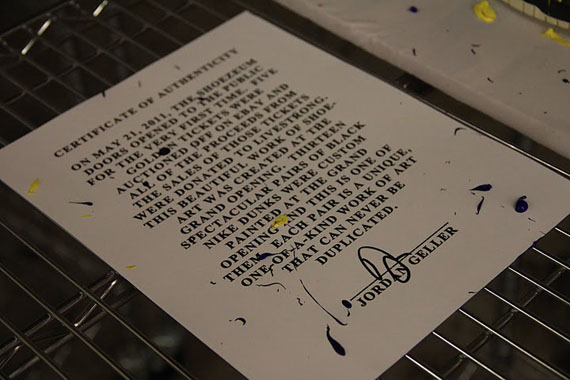 CERTIFICATE OF AUTHENTICITY
ON MAY 21, 2011, THE SHOEZEUM
DOORS OPENED TO THE PUBLIC
FOR THE VERY FIRST TIME. FIVE
GOLDEN TICKETS WERE
AUCTIONED OFF ON EBAY AND
ALL OF THE PROCEEDS FROM
THE SALES OF THOSE TICKETS
WERE DONATED TO LIVESTRONG.
THIS BEAUTIFUL WORK OF SHOE-
ART WAS CREATED AT THE
GRAND OPENING. THIRTEEN
SPECTACULAR PAIRS OF BLACK
NIKE DUNKS WERE CUSTOM
PAINTED AT THE GRAND
OPENING AND THIS IS ONE OF
THEM. EACH PAIR IS A UNIQUE,
ONE-OF-A-KIND WORK OF ART
THAT CAN NEVER BE
DUPLICATED.
JORDAN GELLER